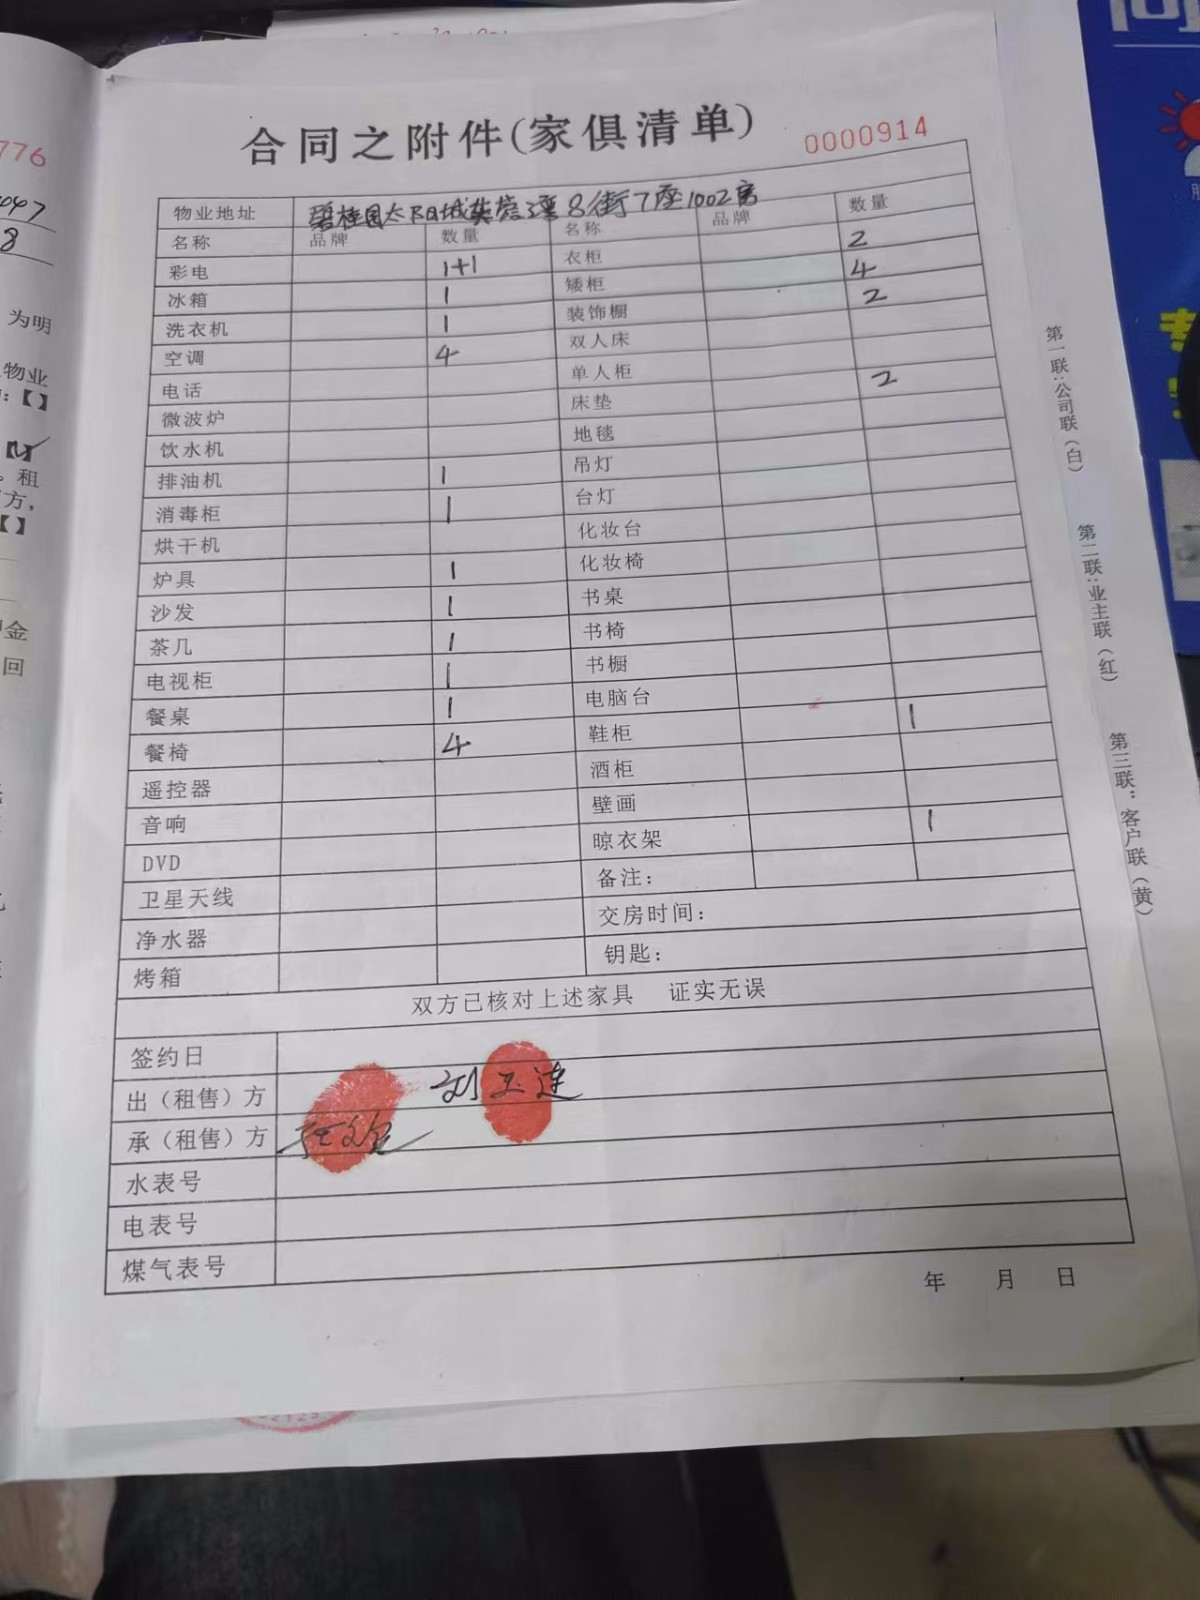 776
447
8
为明
物业
:【】
【✓】
。租
方，
【】
金
回
合同之附件(家俱清单)
0000914
物业地址 碧桂园太阳城芙蓉湾8街7座1002房
名称 品牌 数量 名称 品牌 数量
彩电 1+1 衣柜 2
冰箱 1 矮柜 4
洗衣机 1 装饰橱 2
空调 4 双人床
电话 单人柜
微波炉 床垫 2
饮水机 地毯
排油机 1 吊灯
消毒柜 1 台灯
烘干机 化妆台
炉具 1 化妆椅
沙发 1 书桌
茶几 1 书椅
电视柜 1 书橱
餐桌 1 电脑台
餐椅 4 鞋柜 1
遥控器 酒柜
音响 壁画
DVD 晾衣架 1
卫星天线 备注：
净水器 交房时间：
烤箱 钥匙：
双方已核对上述家具 证实无误
签约日
出（租售）方 刘玉连
承（租售）方
水表号
电表号
煤气表号
年 月 日
第一联：公司联（白）
第二联：业主联（红）
第三联：客户联（黄）